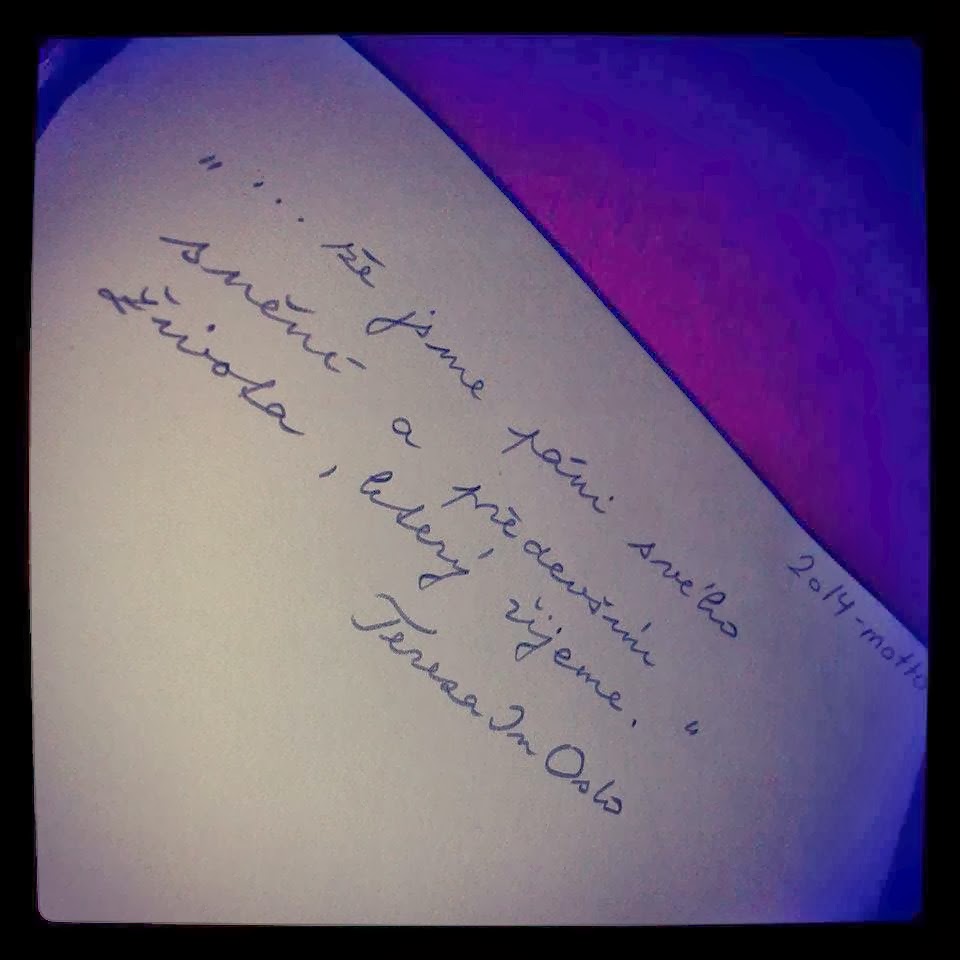 "... že jsme páni svého
snění a především
života, který žijeme."
Teresa In Oslo
2014-motto